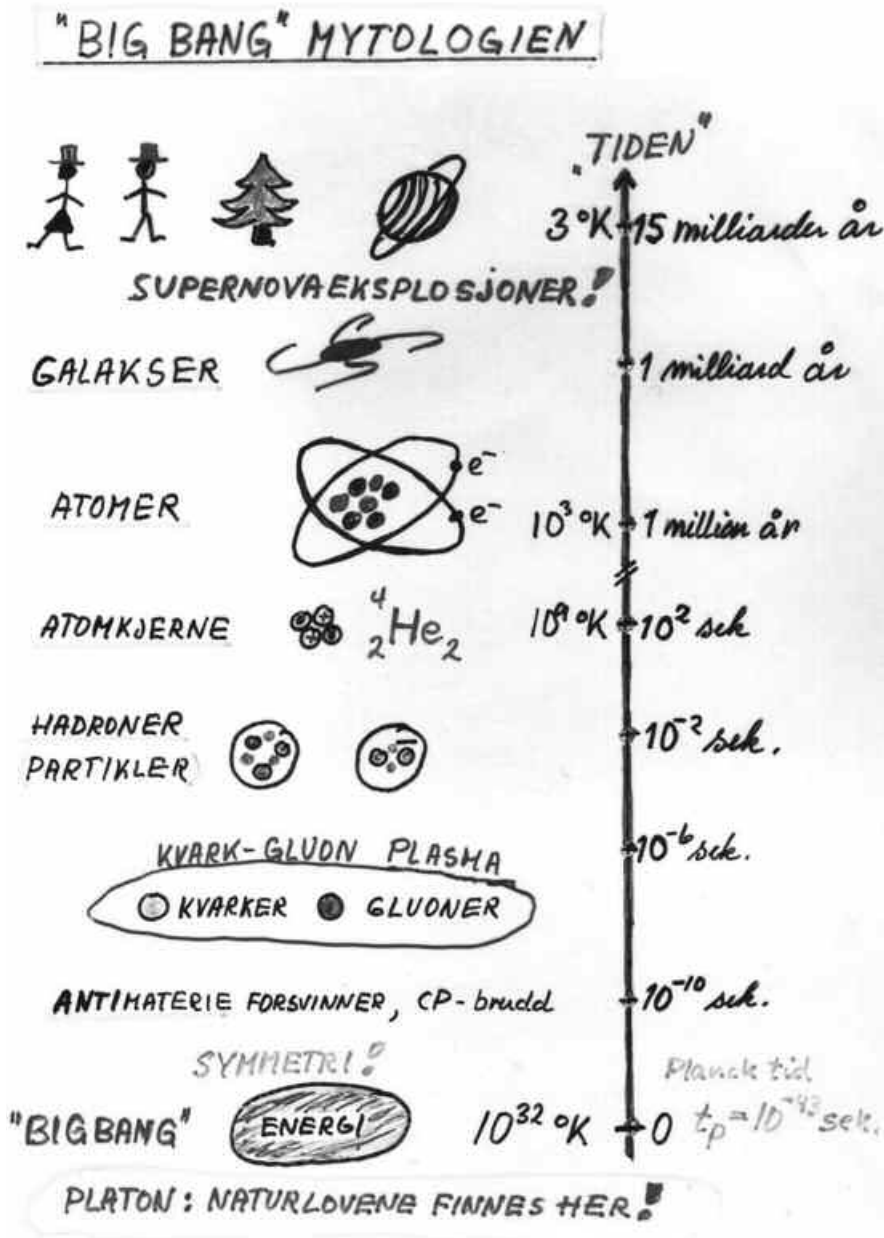 "BIG BANG" MYTOLOGIEN
"TIDEN"
3 °K 15 milliarder år
SUPERNOVAEKSPLOSJONER!
GALAKSER 1 milliard år
ATOMER e⁻ e⁻ 10³ °K 1 million år
ATOMKJERNE ⁴₂He₂ 10⁹ °K 10² sek
HADRONER
PARTIKLER 10⁻² sek.
KVARK-GLUON PLASMA 10⁻⁶ sek.
KVARKER GLUONER
ANTIMATERIE FORSVINNER, CP-brudd 10⁻¹⁰ sek.
SYMMETRI! Planck tid
"BIG BANG" ENERGI 10³² °K 0 tₚ = 10⁻⁴³ sek.
PLATON: NATURLOVENE FINNES HER!